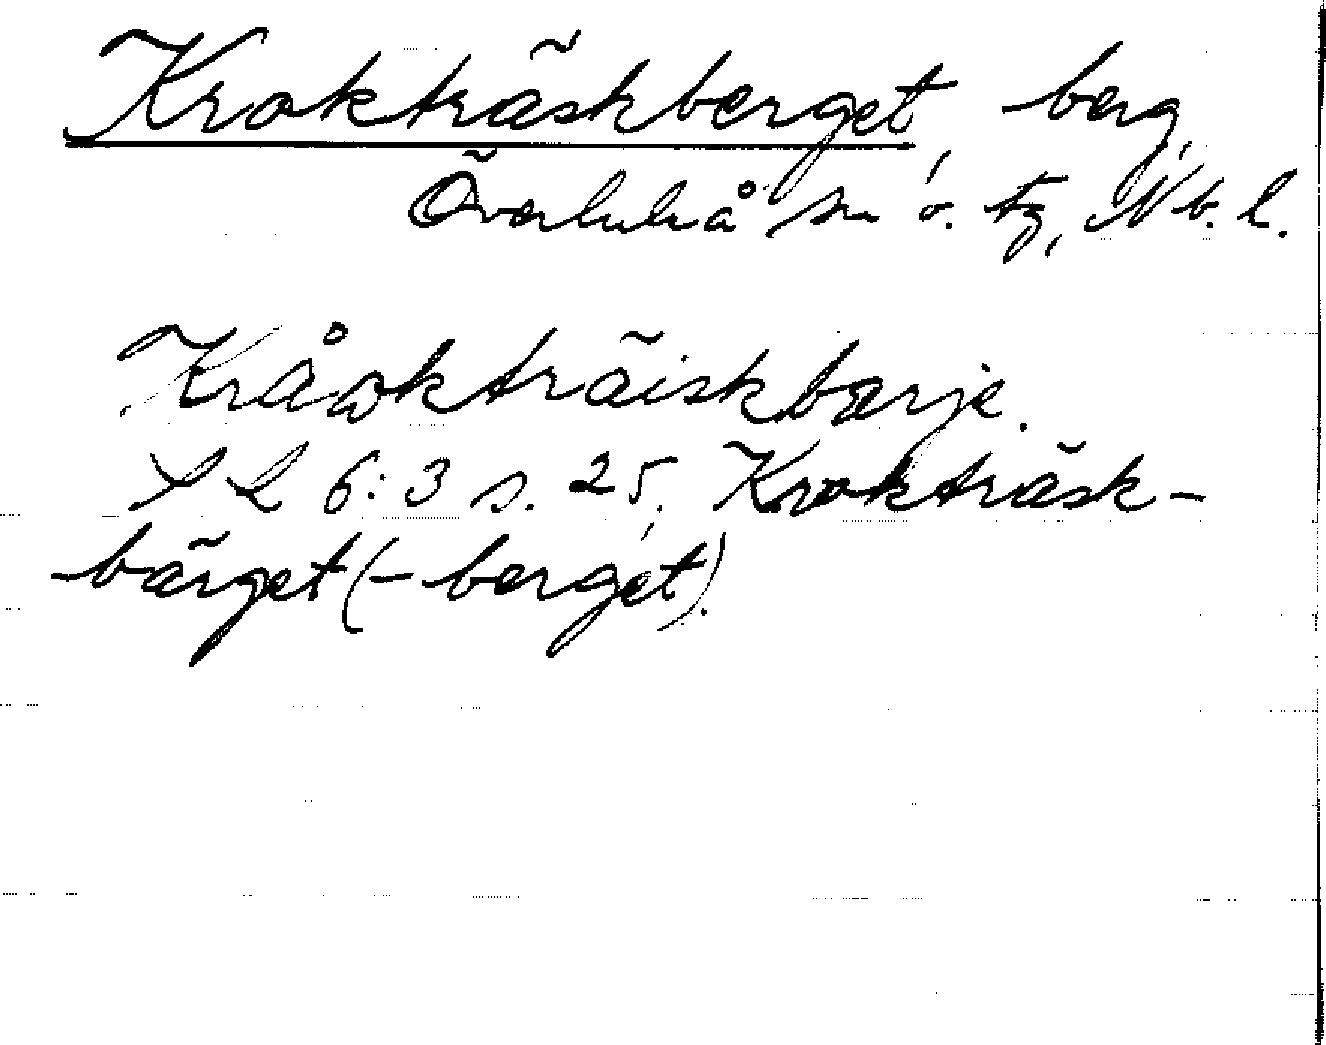 Krokträskberget, berg,
Överluleå sn o. tg, Nb. l.
Kråωkträiskbærje.
SL 6:3 s. 25. Krokträsk-
bärget (-berget).